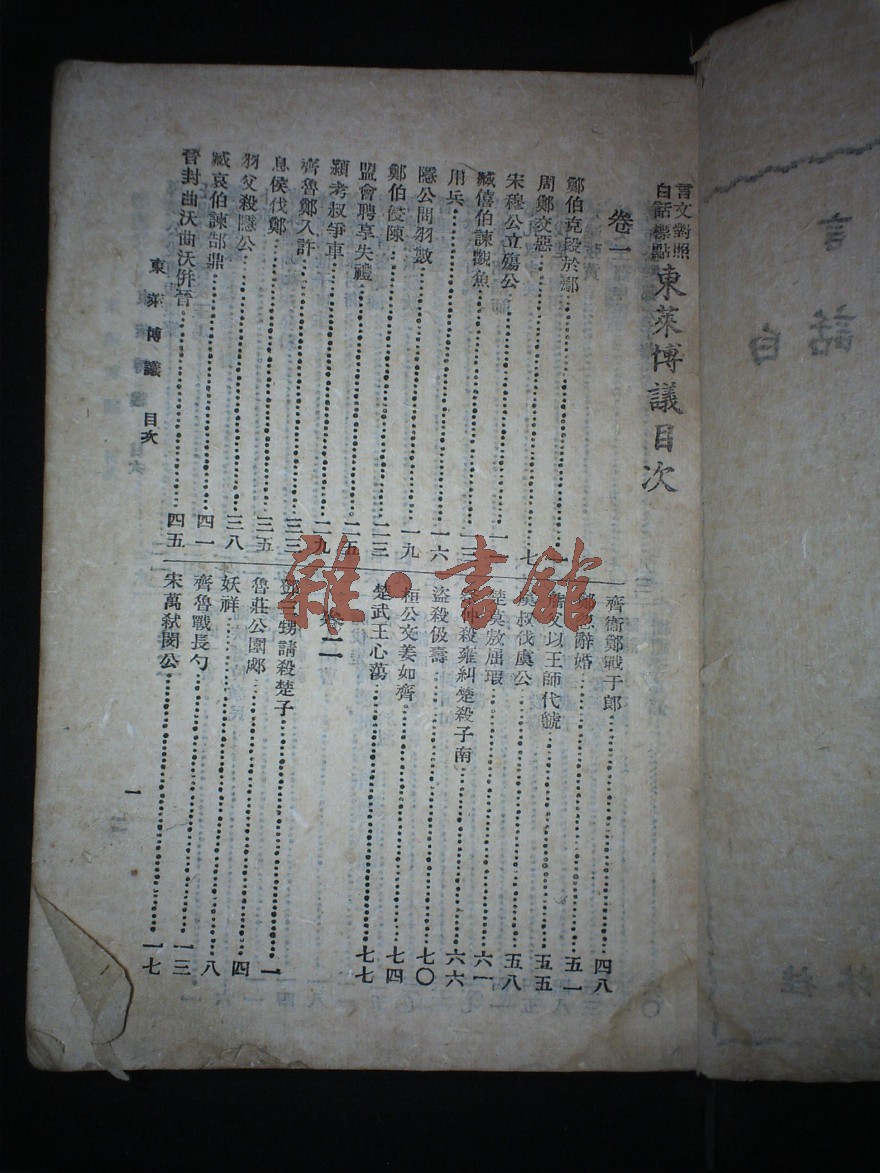 言文對照
白話標點
東萊博議目次
卷一
鄭伯克段於鄢 一
周鄭交惡 七
宋穆公立殤公 一
臧僖伯諫觀魚 一三
用兵 一六
隱公問羽數 一九
鄭伯侵陳 二三
盟會聘享失禮 二五
穎考叔爭車 二九
齊魯鄭入許 三三
息侯伐鄭 三五
羽父殺隱公 三八
臧哀伯諫郜鼎 四一
晉封曲沃曲沃併晉 四五
齊衞鄭戰于郎 四八
辭婚 五一
父以王師伐虢 五五
虞叔伐虞公 五八
楚莫敖屈瑕 六一
仲殺雍糾楚殺子南 六六
盜殺伋壽 七〇
桓公文姜如齊 七四
楚武王心蕩 七七
卷二
鄧三甥請殺楚子 一
魯莊公圍郕 四
妖祥 八
齊魯戰長勺 一三
宋萬弒閔公 一七
東萊博議 目次
一
雜·書館
言
白話